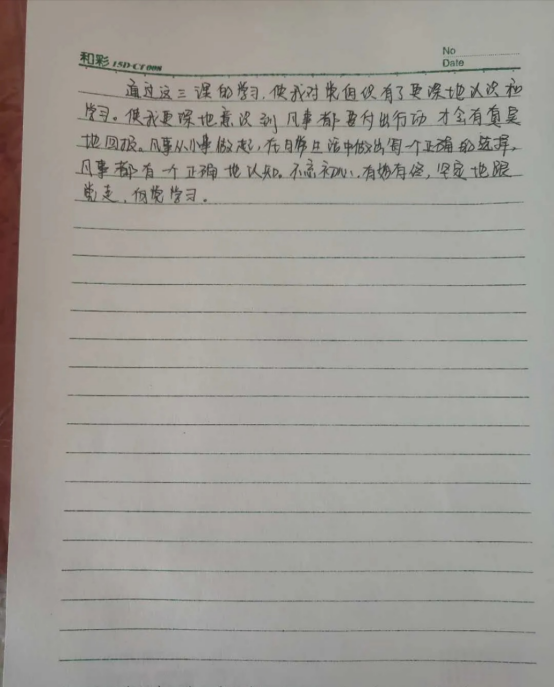 和彩 15D-CT008
No
Date
通过这三课的学习,使我对党组织有了更深地认识和
学习。使我更深地意识到 凡事都要付出行动 才会有真是
地回报。凡事从小事做起,在日常生活中做出每一个正确的选择。
凡事都有一个正确地认知。不忘初心,有始有终,坚定地跟
党走,向党学习。